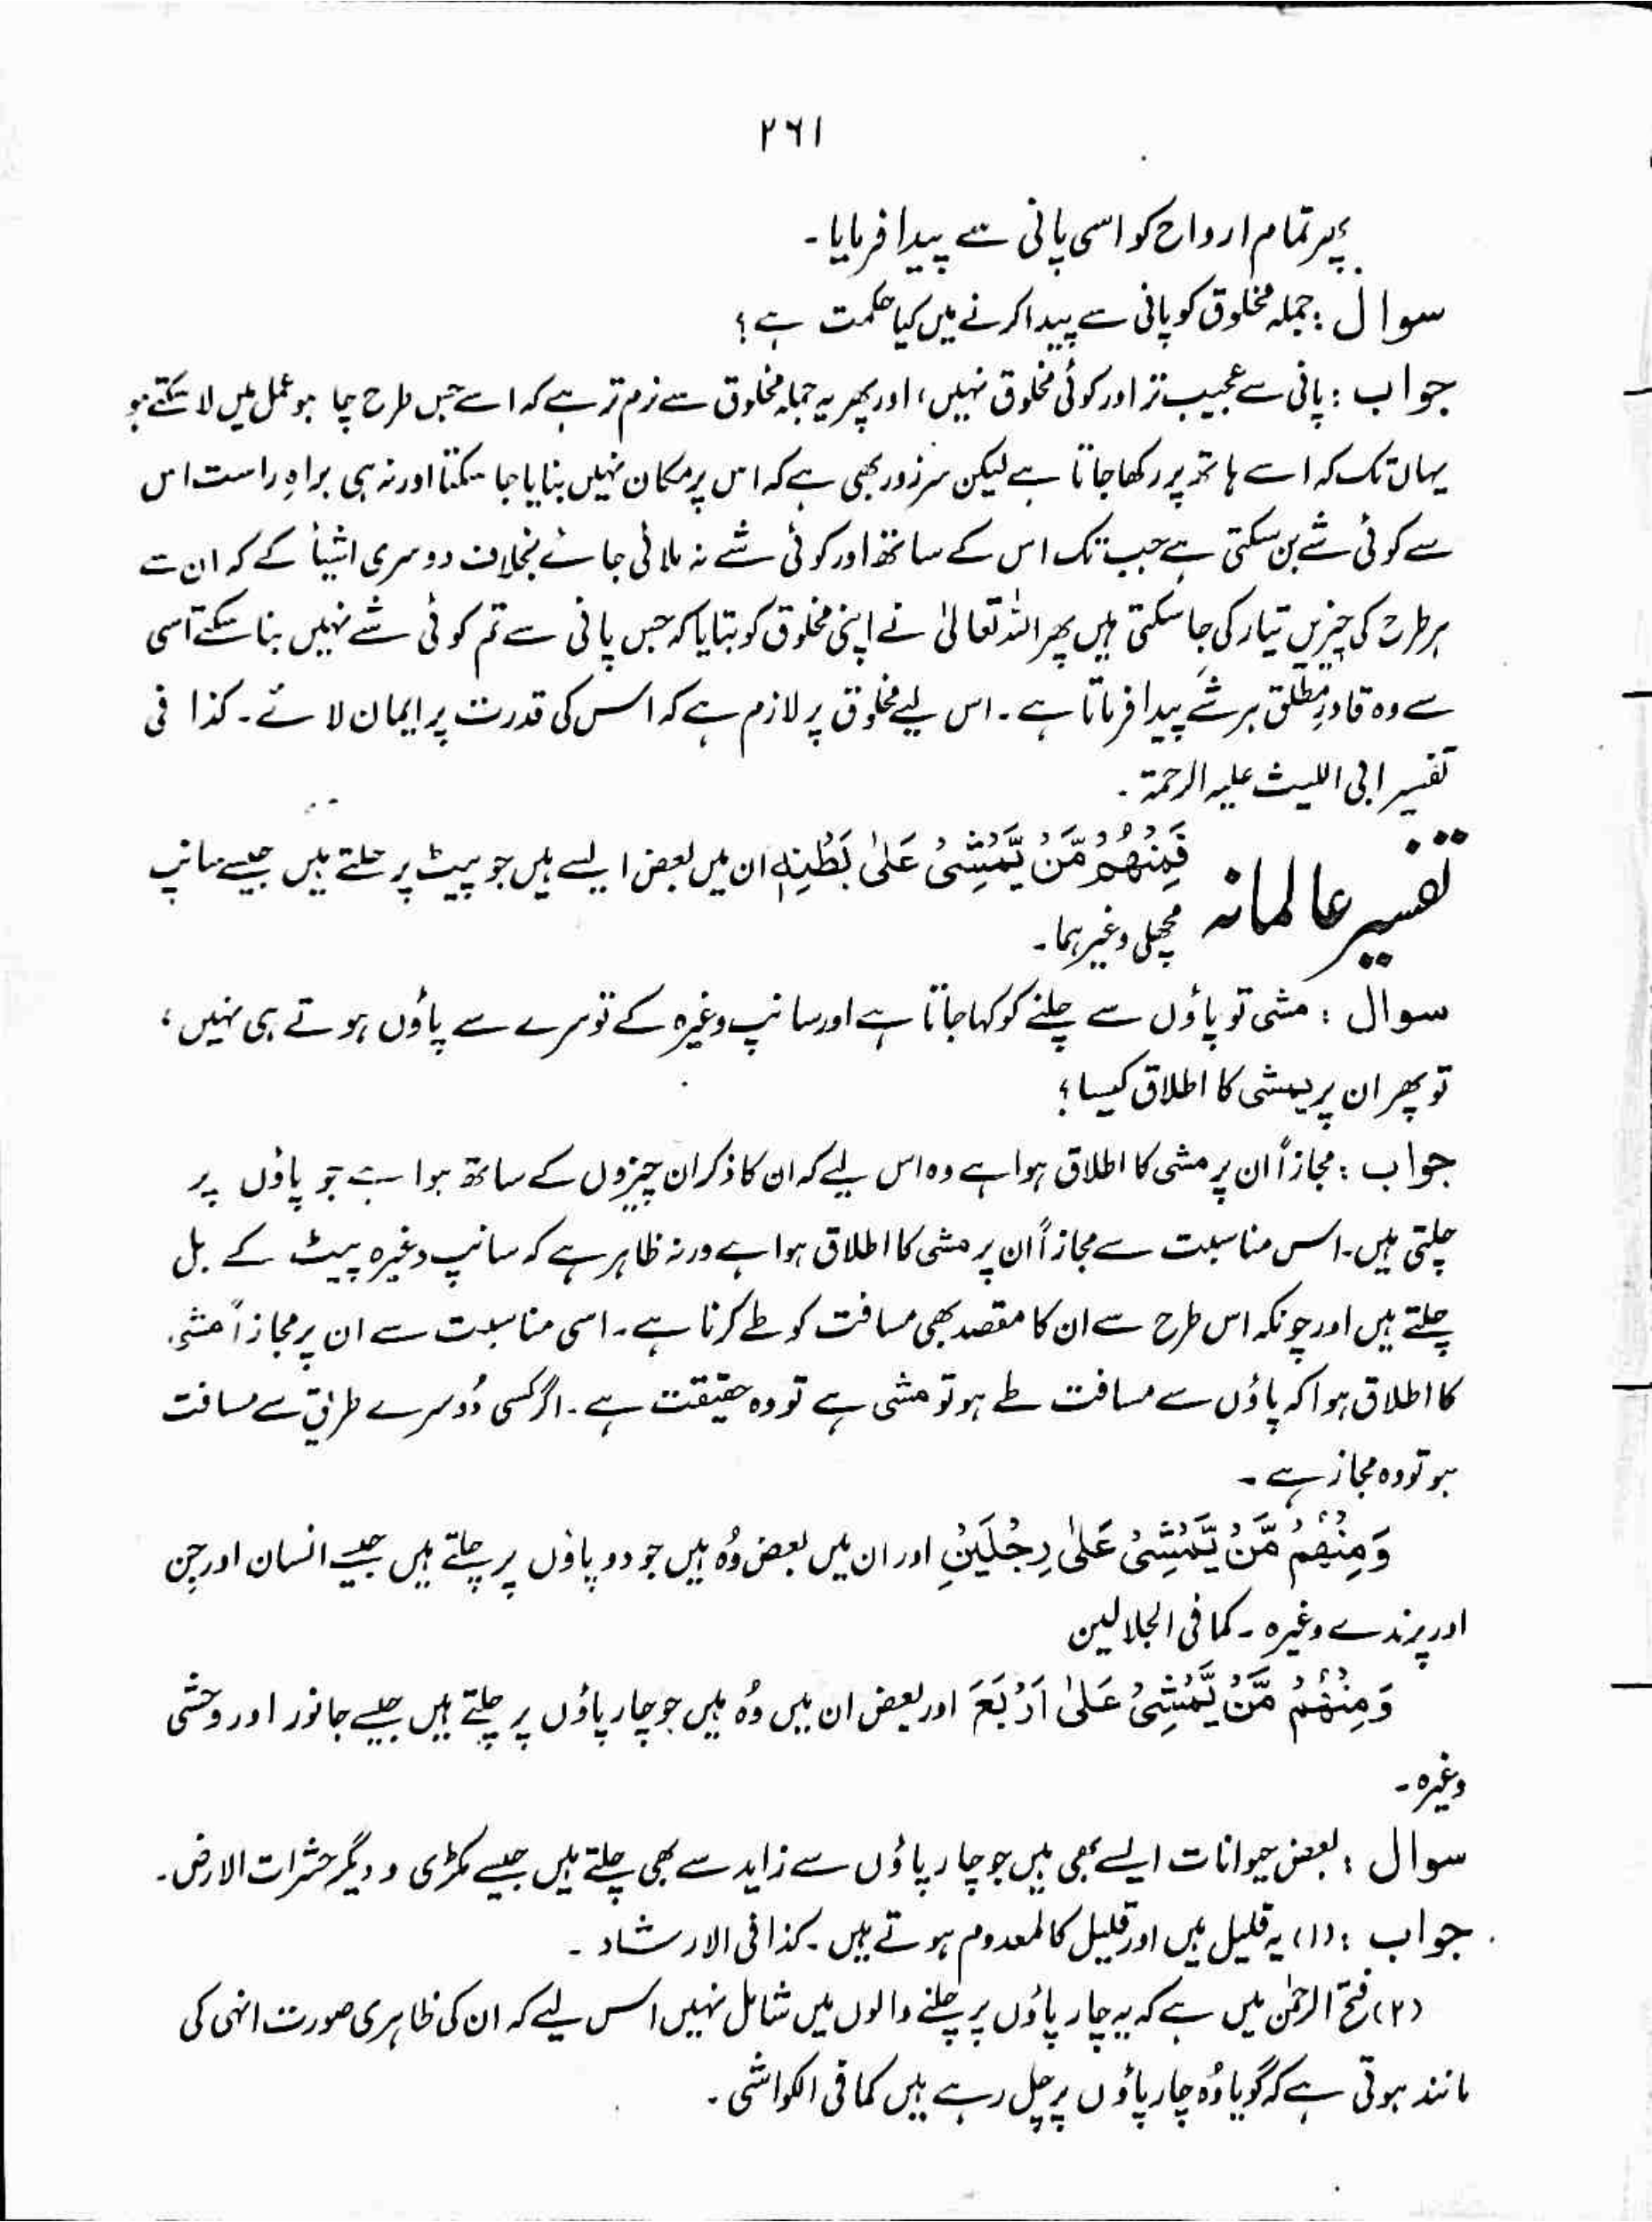 ۲۶۱
پھر تمام ارواح کو اسی پانی سے پیدا فرمایا۔
سوال : جملہ مخلوق کو پانی سے پیدا کرنے میں کیا حکمت ہے؟
جواب : پانی سے عجیب تر اور کوئی مخلوق نہیں، اور پھر یہ جملہ مخلوق سے نرم تر ہے کہ اسے جس طرح چاہو عمل میں لا سکتے ہو
یہاں تک کہ اسے ہاتھ پر رکھا جاتا ہے لیکن سرزور بھی ہے کہ اس پر مکان نہیں بنایا جا سکتا اور نہ ہی براہِ راست اس
سے کوئی شے بن سکتی ہے جب تک اس کے ساتھ اور کوئی شے نہ ملائی جائے بخلاف دوسری اشیأ کے کہ ان سے
ہر طرح کی چیزیں تیار کی جا سکتی ہیں پھر اللہ تعالیٰ نے اپنی مخلوق کو بتایا کہ جس پانی سے تم کوئی شے نہیں بنا سکتے اسی
سے وہ قادرِ مطلق ہر شے پیدا فرماتا ہے۔ اس لیے مخلوق پر لازم ہے کہ اس کی قدرت پر ایمان لائے۔ کذا فی
تفسیر ابی اللیث علیہ الرحمۃ۔
تفسیر عالمانہ فَمِنْهُمْ مَّنْ يَّمْشِيْ عَلىٰ بَطْنِهٖ ان میں بعض ایسے ہیں جو پیٹ پر چلتے ہیں جیسے سانپ
مچھلی وغیرہما۔
سوال : مشی تو پاؤں سے چلنے کو کہا جاتا ہے اور سانپ وغیرہ کے تو سرے سے پاؤں ہوتے ہی نہیں،
تو پھر ان پر یمشی کا اطلاق کیسا؟
جواب : مجازاً ان پر مشی کا اطلاق ہوا ہے وہ اس لیے کہ ان کا ذکر ان چیزوں کے ساتھ ہوا ہے جو پاؤں پر
چلتی ہیں۔ اس مناسبت سے مجازاً ان پر مشی کا اطلاق ہوا ہے ورنہ ظاہر ہے کہ سانپ وغیرہ پیٹ کے بل
چلتے ہیں اور چونکہ اس طرح سے ان کا مقصد بھی مسافت کو طے کرنا ہے۔ اسی مناسبت سے ان پر مجازاً مشی
کا اطلاق ہوا کہ پاؤں سے مسافت طے ہو تو مشی ہے تو وہ حقیقت ہے۔ اگر کسی دُوسرے طریق سے مسافت
ہو تو وہ مجاز ہے۔
وَمِنْهُمْ مَّنْ يَّمْشِيْ عَلىٰ رِجْلَيْنِ اور ان میں بعض وُہ ہیں جو دو پاؤں پر چلتے ہیں جیسے انسان اور جِن
اور پرندے وغیرہ۔ کما فی الجلالین
وَمِنْهُمْ مَّنْ يَّمْشِيْ عَلىٰ اَرْبَعَ اور بعض ان میں وُہ ہیں جو چار پاؤں پر چلتے ہیں جیسے جانور اور وحشی
وغیرہ۔
سوال : بعض حیوانات ایسے بھی ہیں جو چار پاؤں سے زاید سے بھی چلتے ہیں جیسے مکڑی و دیگر حشرات الارض۔
جواب : (۱) یہ قلیل ہیں اور قلیل کالمعدوم ہوتے ہیں۔ کذا فی الارشاد۔
(۲) فتح الرحمٰن میں ہے کہ یہ چار پاؤں پر چلنے والوں میں شامل نہیں اس لیے کہ ان کی ظاہری صورت انہی کی
مانند ہوتی ہے کہ گویا وُہ چار پاؤں پر چل رہے ہیں کما فی الکواشی۔